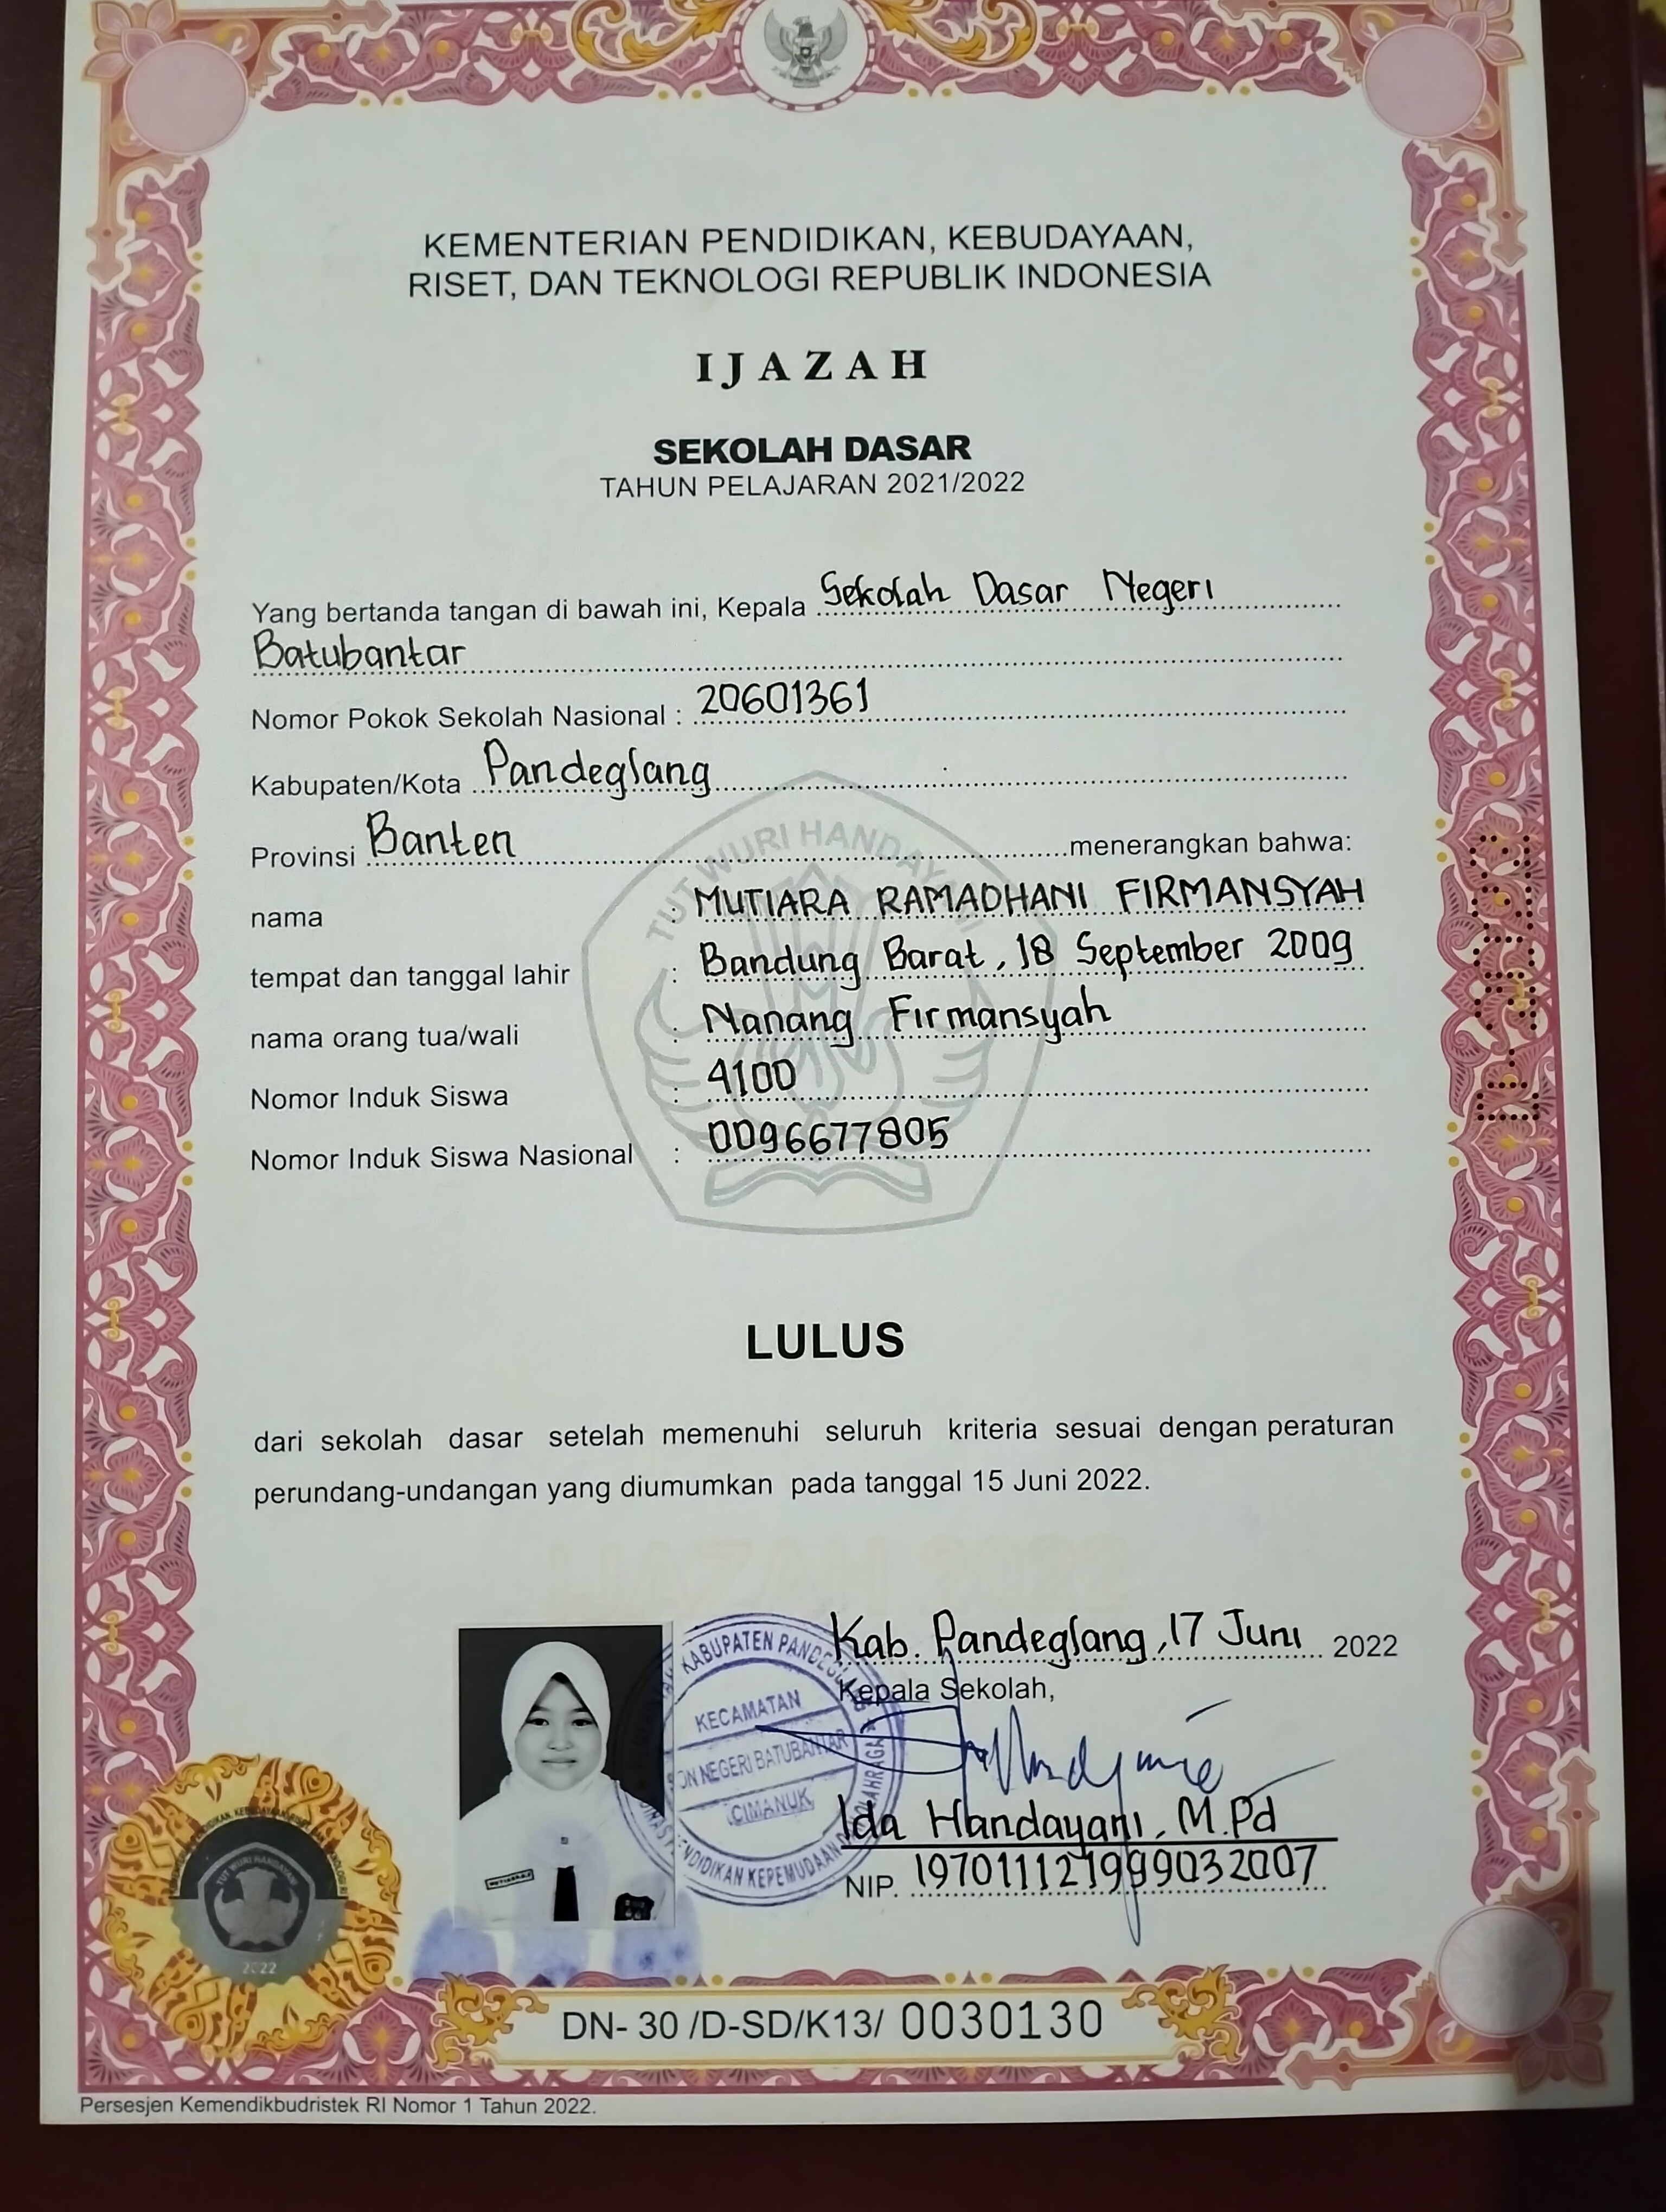 KEMENTERIAN PENDIDIKAN, KEBUDAYAAN,
RISET, DAN TEKNOLOGI REPUBLIK INDONESIA
IJAZAH
SEKOLAH DASAR
TAHUN PELAJARAN 2021/2022
Yang bertanda tangan di bawah ini, Kepala Sekolah Dasar Negeri
Batubantar
Nomor Pokok Sekolah Nasional : 20601361
Kabupaten/Kota Pandeglang
Provinsi Banten menerangkan bahwa:
TUT WURI HANDAYANI
nama : MUTIARA RAMADHANI FIRMANSYAH
tempat dan tanggal lahir : Bandung Barat, 18 September 2009
nama orang tua/wali : Nanang Firmansyah
Nomor Induk Siswa : 4100
Nomor Induk Siswa Nasional : 0096677805
LULUS
dari sekolah dasar setelah memenuhi seluruh kriteria sesuai dengan peraturan
perundang-undangan yang diumumkan pada tanggal 15 Juni 2022.
IJAZAH 2022
Kab. Pandeglang, 17 Juni 2022
Kepala Sekolah,
KABUPATEN
KECAMATAN
NEGERI BATUBANTAR
CIMANUK
PENDIDIKAN KEPEMUDAAN
Ida Handayani, M.Pd
NIP. 197011121999032007
TUT WURI HANDAYANI
2022
DN- 30 /D-SD/K13/ 0030130
Persesjen Kemendikbudristek RI Nomor 1 Tahun 2022.